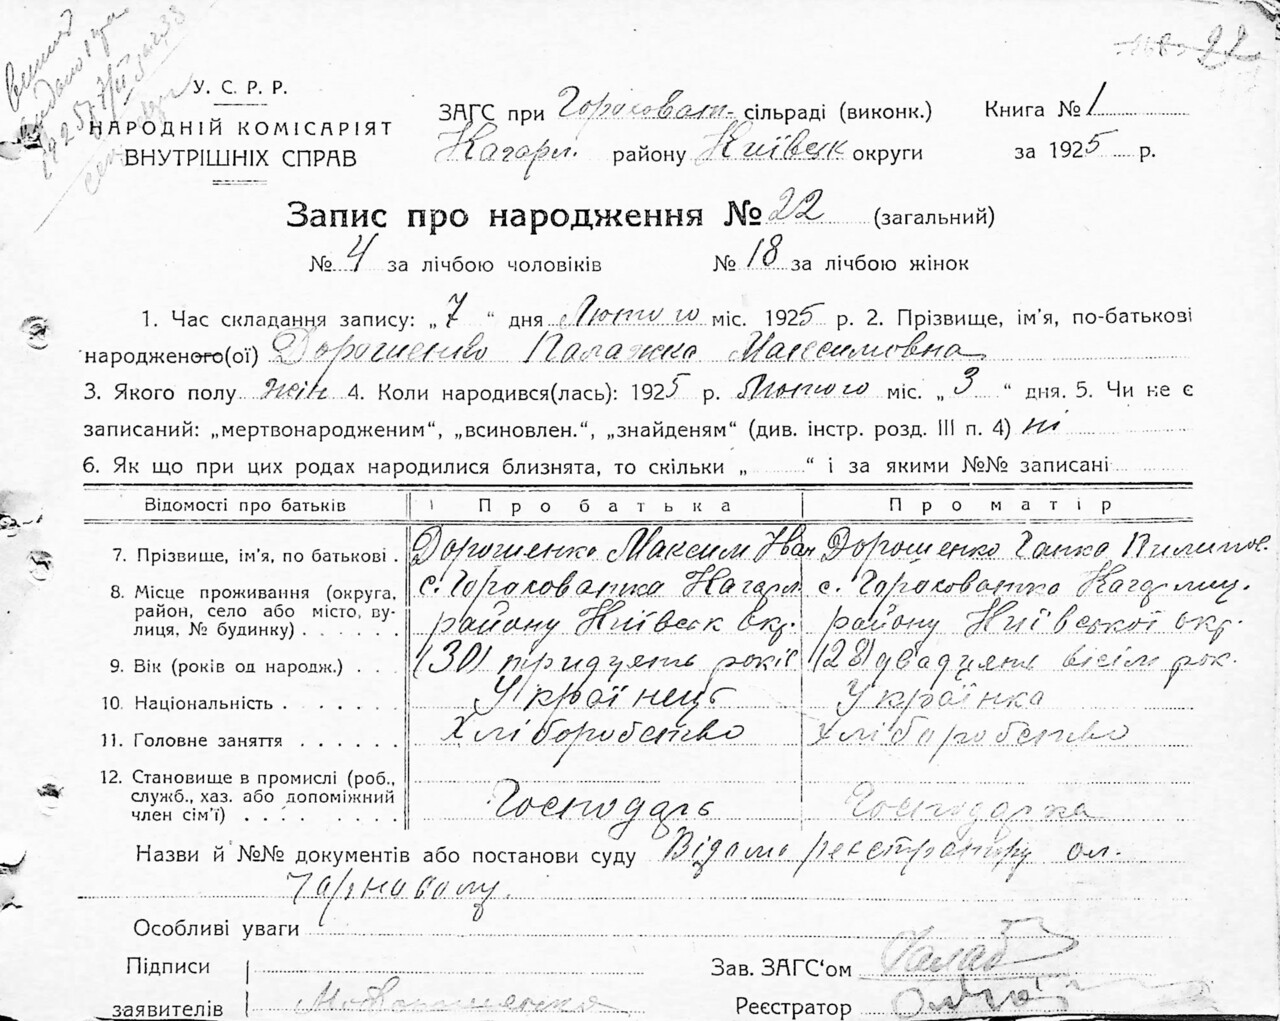 22
У. С. Р. Р.
НАРОДНІЙ КОМІСАРІЯТ
ВНУТРІШНІХ СПРАВ
ЗАГС при Гороховат. сільраді (виконк.)
Кагарл. району Київськ округи
Книга № 1
за 1925 р.
Запис про народження № 22 (загальний)
№ 4 за лічбою чоловіків № 18 за лічбою жінок
1. Час складання запису: „7“ дня Лютого міс. 1925 р. 2. Прізвище, ім’я, по-батькові
народженого(ої) Дорошенко Палажка Максимовна
3. Якого полу жін 4. Коли народився(лась): 1925 р. Лютого міс. „3“ дня. 5. Чи не є
записаний: „мертвонародженим“, „всиновлен.“, „знайденям“ (див. інстр. розд. III п. 4) ні
6. Як що при цих родах народилися близнята, то скільки „ “ і за якими №№ записані
Відомості про батьків Про батька Про матір
7. Прізвище, ім’я, по батькові . Дорошенко Максим Іван Дорошенко Ганка Пилипов.
8. Місце проживання (округа, с. Горохованка Кагарл с. Горохованка Кагарлиц.
район, село або місто, ву-
лиця, № будинку) . . . . . . району Київськ окр. району Київської окр.
9. Вік (років од народж.) . . (30) тридцять років (28) двадцять вісім рок.
10. Національність . . . . . . . Українець Українка
11. Головне заняття . . . . . . Хліборобство Хліборобство
12. Становище в промислі (роб.,
служб., хаз. або допоміжний
член сім’ї) . . . . . . . . Господарь Господарка
Назви й №№ документів або постанови суду Відома реєстратору ол.
Особливі уваги
Підписи
заявителів
Зав. ЗАГС‘ом
Реєстратор